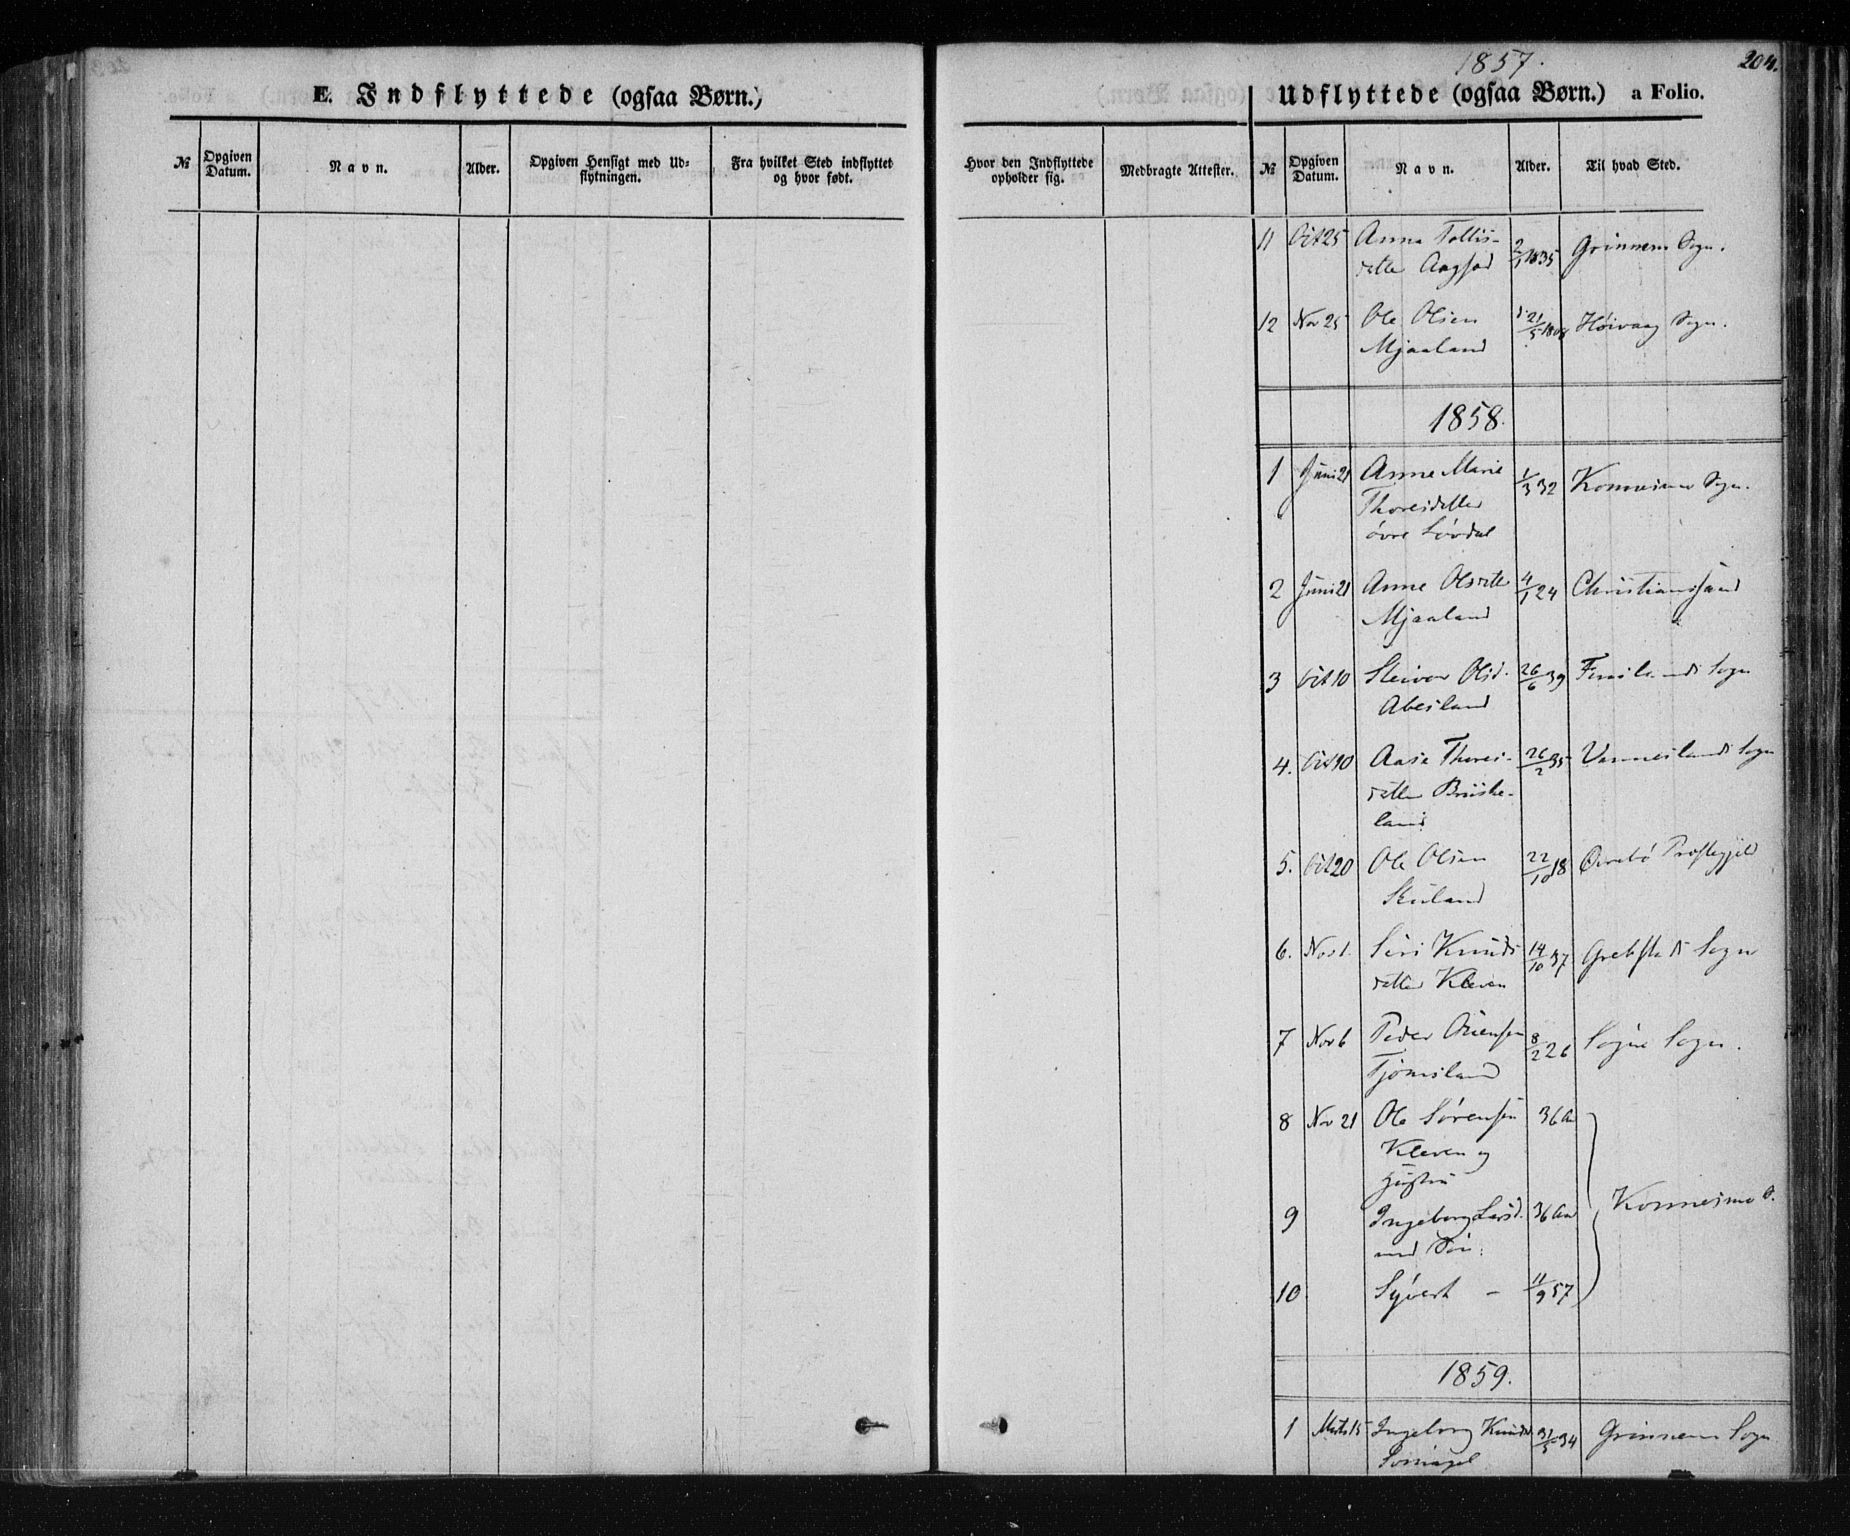 1857.
204.
E. Indflyttede (ogsaa Børn.)
Udflyttede (ogsaa Børn.) a Folio.
№ Opgiven Datum. Navn. Alder. Opgiven Hensigt med Udflytningen. Fra hvilket Sted indflyttet og hvor født.
Hvor den Indflyttede opholder sig. Medbragte Attester. № Opgiven Datum. Navn. Alder. Til hvad Sted.
11 Oct 25 Anna Tollis- 2/1 1835 Grinnems Sogn.
datter
12 Nov 25 Ole Olsen 21/5 1808 Høivaag Sogn.
Mjaaland
1858.
1 Juni 21 Anne Marie 1/3 32 Konnesmo Sogn.
Thoresdatter
øvre Løvdal
2 Juni 21 Anne Olsdatter 4/1 24 Christianssand
Mjaaland
3 Oct 10 Steinvor Olsd. 26/6 39 Finslands Sogn
Abesland
4. Oct 10 Aase Thores- 26/2 35 Vennesland Sogn
datter Brüske-
land
5. Oct 20 Ole Olsen 22/10 18 Øvrebø Præstegjeld
Skuland
6. Nov 1. Siri Knuds 14/10 37 Grebstads Sogn
datter Kleven
7 Nov 6 Peder 8/2 26 Søgne Sogn.
Tjomsland
8 Nov 21 Ole Sørensen 36 Aar
Kleven og
Hustru
9 Ingeborg Larsd. 36 Aar Konnesmo S.
med Søn:
10 Syvert – 11/9 57
1859.
1 Marts 15 Ingeborg Knudsd. 31/5 34 Grinnems Sogn